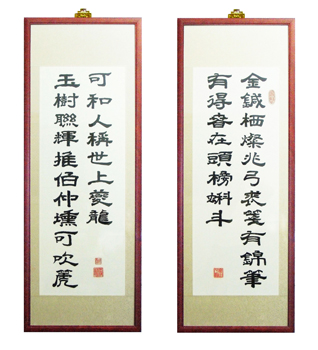 金鍼燦兆弓裘箋有錦筆
有得在頭榜蝌斗
玉樹聯輝推伯仲壎可吹篪
可和人稱世上夔龍